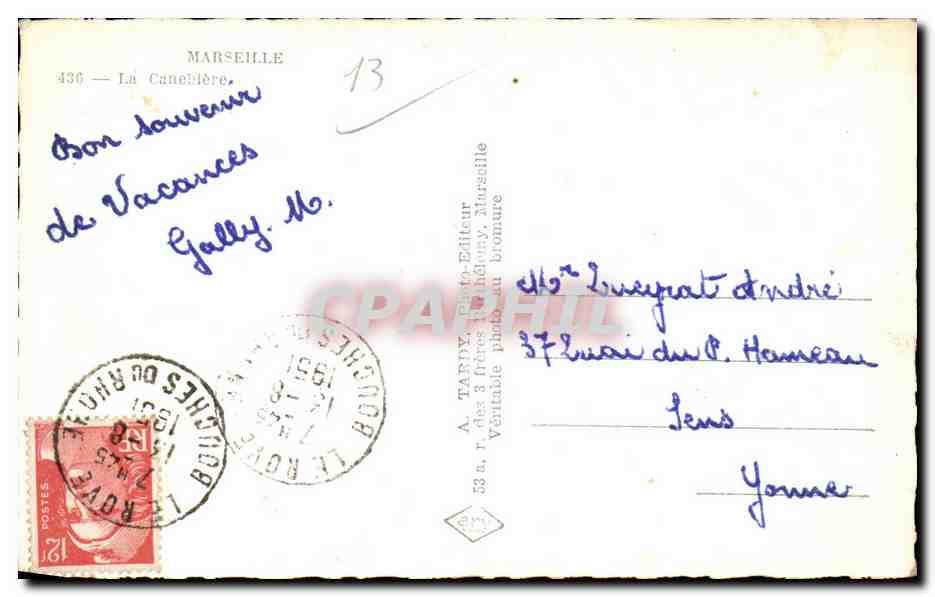 MARSEILLE
436 — La Canebière
13
Bon souvenir
de Vacances
Gally. M.
A. TARDY, Photo-Editeur
53 a, r. des 3 frères Barthélemy, Marseille
Véritable photo au bromure
ery
CPAPHIL
Mr Queyrat André
37 Quai du P. Hameau
Sens
Yonne
LE ROVE
7 H 45
13-8
1951
BOUCHES DU RHONE
LE ROVE
7 H 45
1951
BOUCHES DU RHONE
POSTES
12F
RF